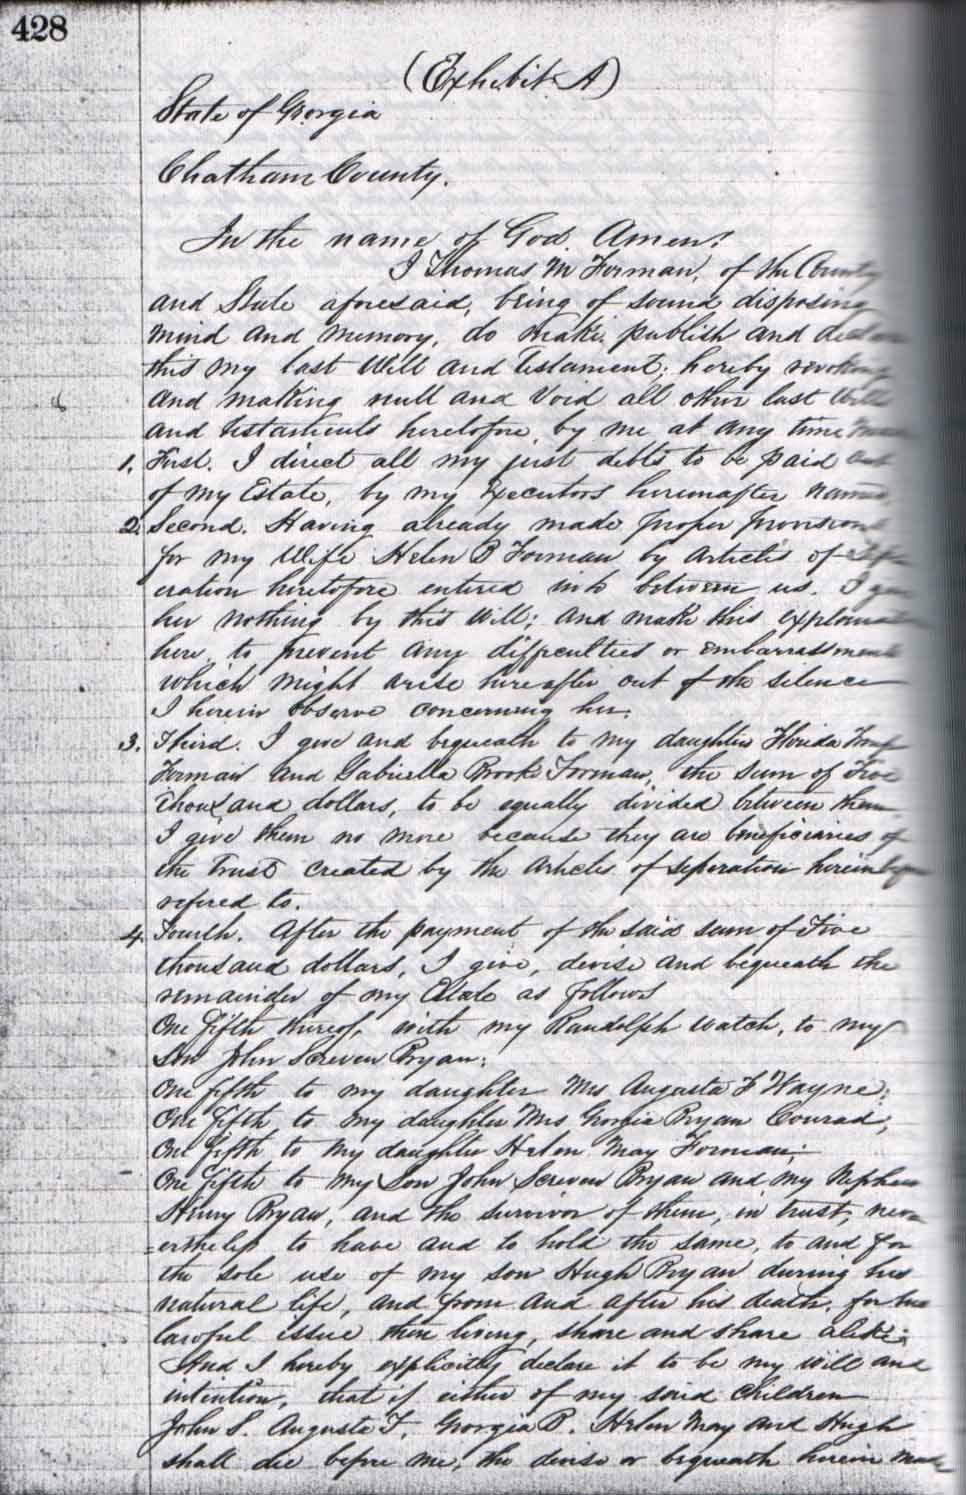 428
(Exhibit A)
State of Georgia
Chatham County.
In the name of God. Amen!
I Thomas M Forman, of the County
and State aforesaid, being of sound disposing
mind and memory, do make, publish and declare
this my last Will and Testament; hereby revoking
and making null and void all other last Wills
and testaments heretofore, by me at any time made
1. First. I direct all my just debts to be paid out
of my Estate, by my Executors hereinafter named,
2. Second. Having already made proper provision
for my Wife Helen B Forman by articles of Sep
eration heretofore entered into between us. I give
her nothing by this Will; and make this explanation
here, to prevent any difficulties or embarrassments
which might arise hereafter out of the silence
I herein observe concerning her.
3. Third. I give and bequeath to my daughters Florida Troup
Forman and Gabriella Brooke Forman, the sum of Five
thousand dollars, to be equally divided between them
I give them no more because they are beneficiaries of
the trust created by the Articles of Seperation herein before
refered to.
4. Fourth. After the payment of the said sum of Five
thousand dollars, I give, devise and bequeath the
remainder of my Estate as follows
One fifth thereof, with my Randolph watch, to my
Son John Screven Bryan;
One fifth to my daughter Mrs Augusta F Wayne;
One fifth to my daughter Mrs Georgia Bryan Conrad;
One fifth to my daughter Helen May Forman;
One fifth to my Son John Screven Bryan and my Nephew
Henry Bryan, and the survivor of them, in trust, nev
=ertheless to have and to hold the same, to and for
the sole use of my son Hugh Bryan during his
natural life, and from and after his death, for his
lawful issue then living, share and share alike;
And I hereby explicitly declare it to be my will and
intention, that if either of my said children
John S. Augusta F, Georgia B. Helen May and Hugh
shall die before me, the devise or bequeath herein made